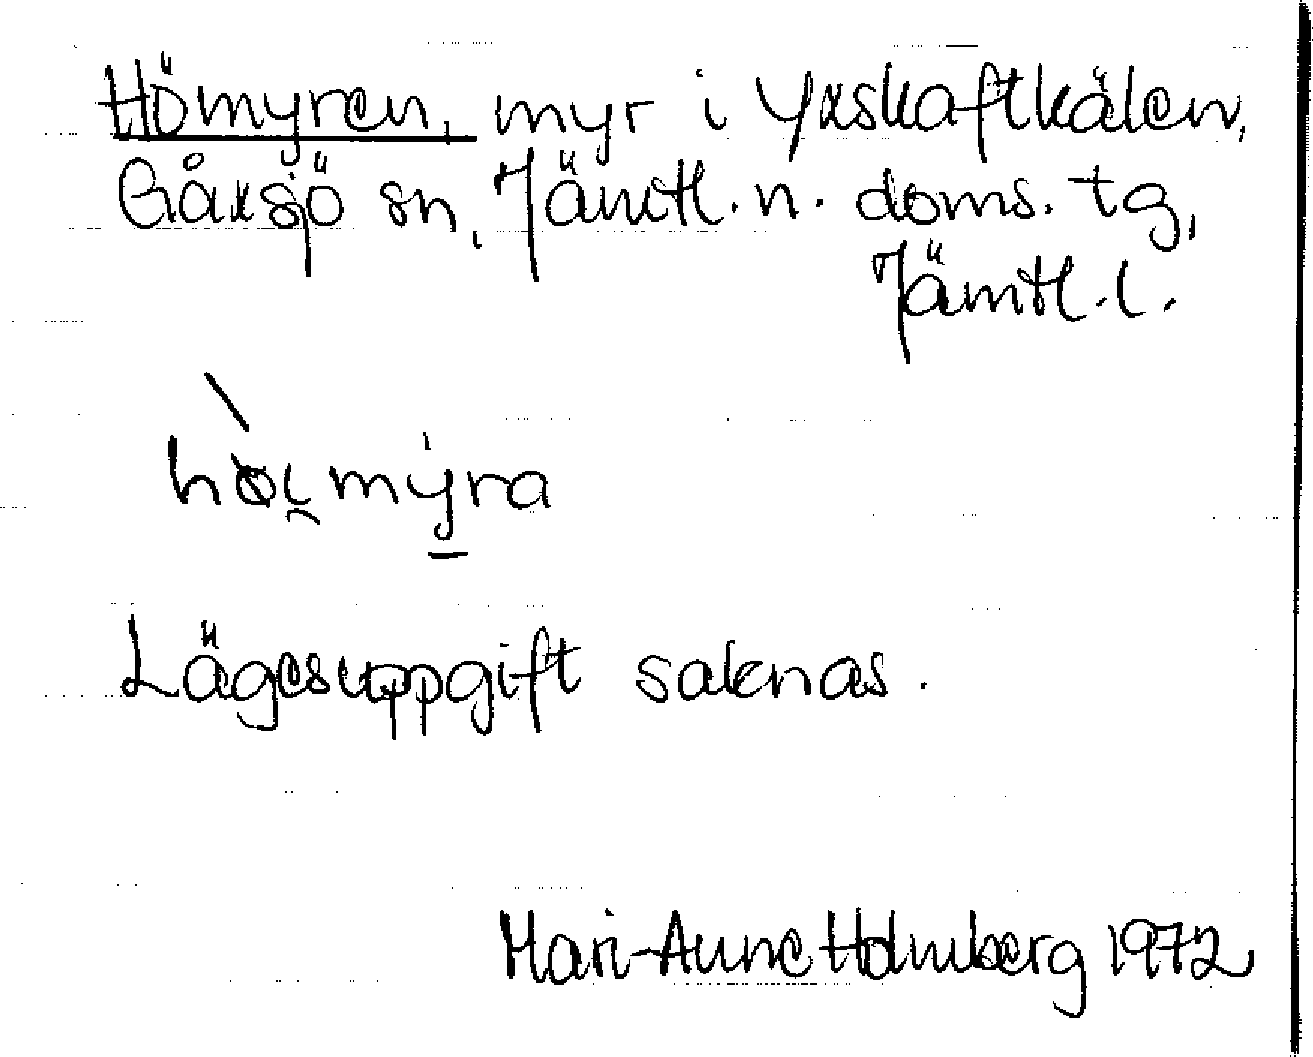 Hömyren, myr i Yxskaftkälen,
Gåxsjö sn, Jämtl. n. doms. tg,
Jämtl. l.
hòi̯mýra
Lägesuppgift saknas.
Mari-Anne Holmberg 1972